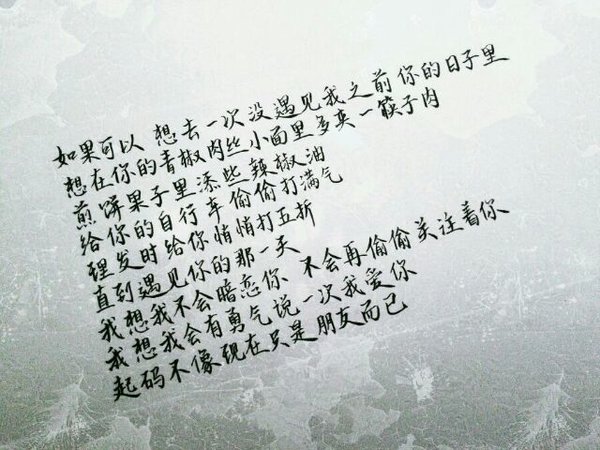 如果可以 想去一次没遇见我之前你的日子里
想在你的青椒肉丝小面里多夹一筷子肉
煎饼果子里添些辣椒油
给你的自行车偷偷打满气
理发时给你悄悄打五折
直到遇见你的那一天
我想我不会暗恋你 不会再偷偷关注着你
我想我会有勇气说一次我爱你
起码不像现在只是朋友而已